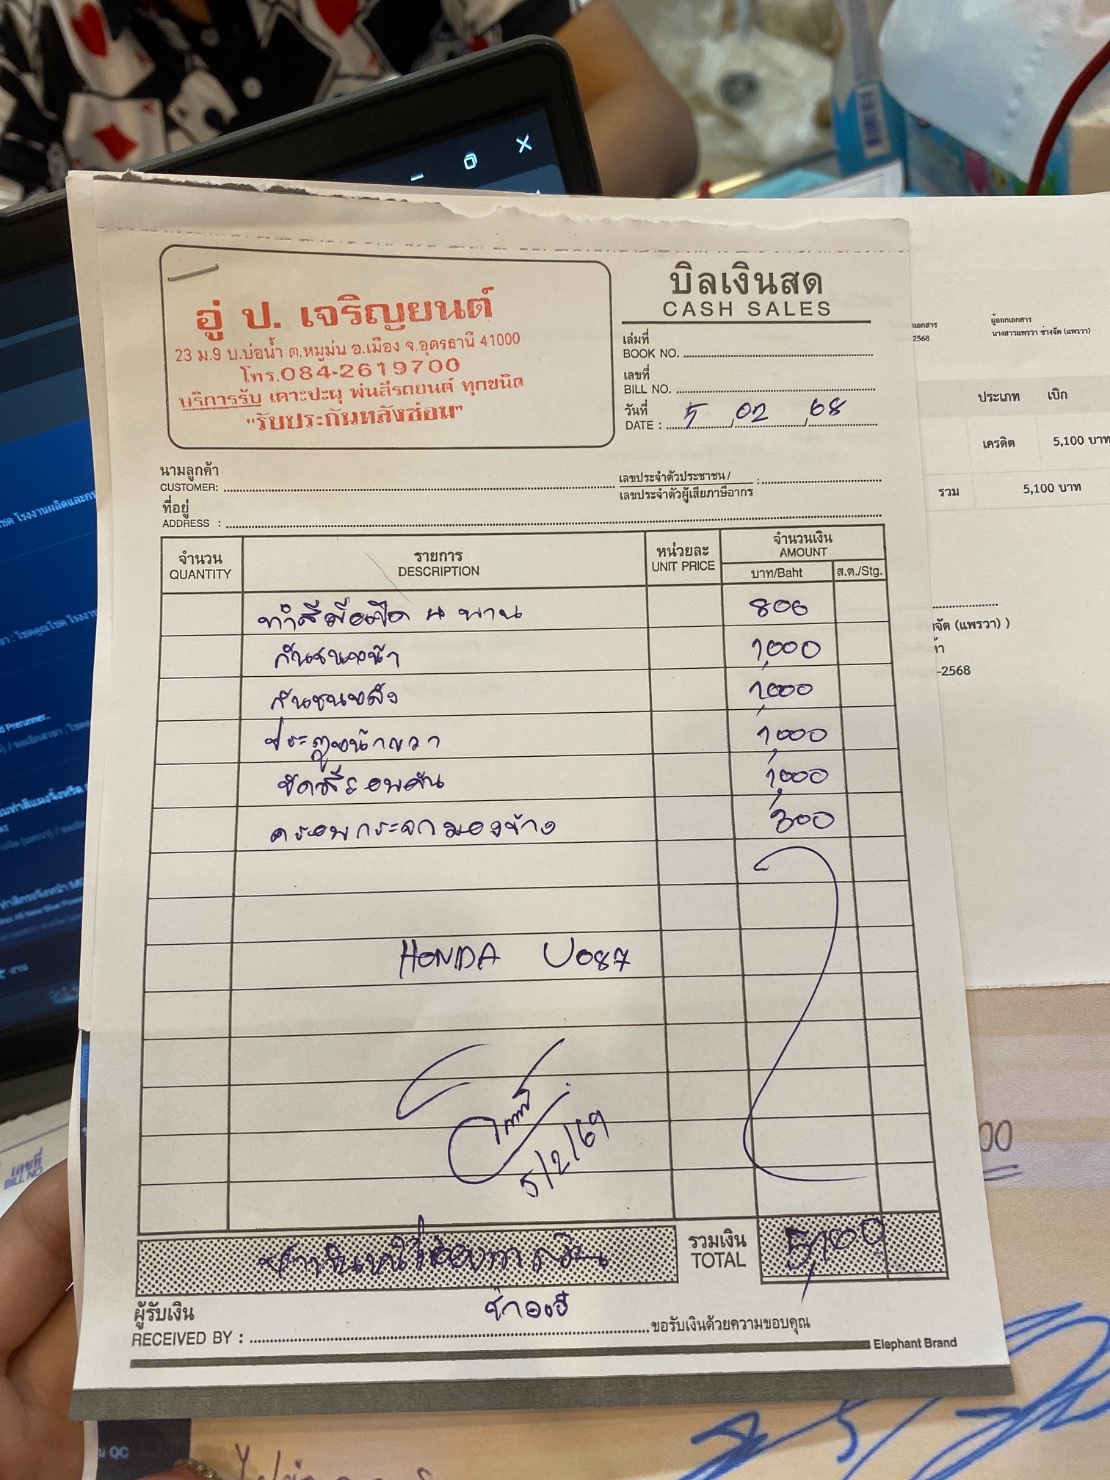 อู่ ป. เจริญยนต์
23 ม.9 บ.บ่อน้ำ ต.หมูม่น อ.เมือง จ.อุดรธานี 41000
โทร.084-2619700
บริการรับ เคาะปะผุ พ่นสีรถยนต์ ทุกชนิด
"รับประกันหลังซ่อม"
บิลเงินสด
CASH SALES
เล่มที่
BOOK NO.
เลขที่
BILL NO.
วันที่
DATE : 5 / 02 / 68
นามลูกค้า
CUSTOMER:
เลขประจำตัวประชาชน /
เลขประจำตัวผู้เสียภาษีอากร :
ที่อยู่
ADDRESS :
จำนวน QUANTITY รายการ DESCRIPTION หน่วยละ UNIT PRICE จำนวนเงิน AMOUNT
บาท/Baht ส.ต./Stg.
ทำสีมือเปิด 4 บาน 800
กันชนหน้า 1,000
กันชนหลัง 1,000
ประตูหน้าขวา 1,000
ขัดสีรอบคัน 1,000
ครอบกระจกมองข้าง 300
HONDA U087
5/2/69
รวมเงิน
TOTAL 5,100
ผู้รับเงิน
RECEIVED BY :
ขอรับเงินด้วยความขอบคุณ
Elephant Brand
ผู้ออกเอกสาร
นางสาวแพรวา ช่างจัด (แพรวา)
2568
ประเภท เบิก
เครดิต 5,100 บาท
รวม 5,100 บาท
(แพรวา) )
-2568
00
เลขที่
BILL NO.
QC